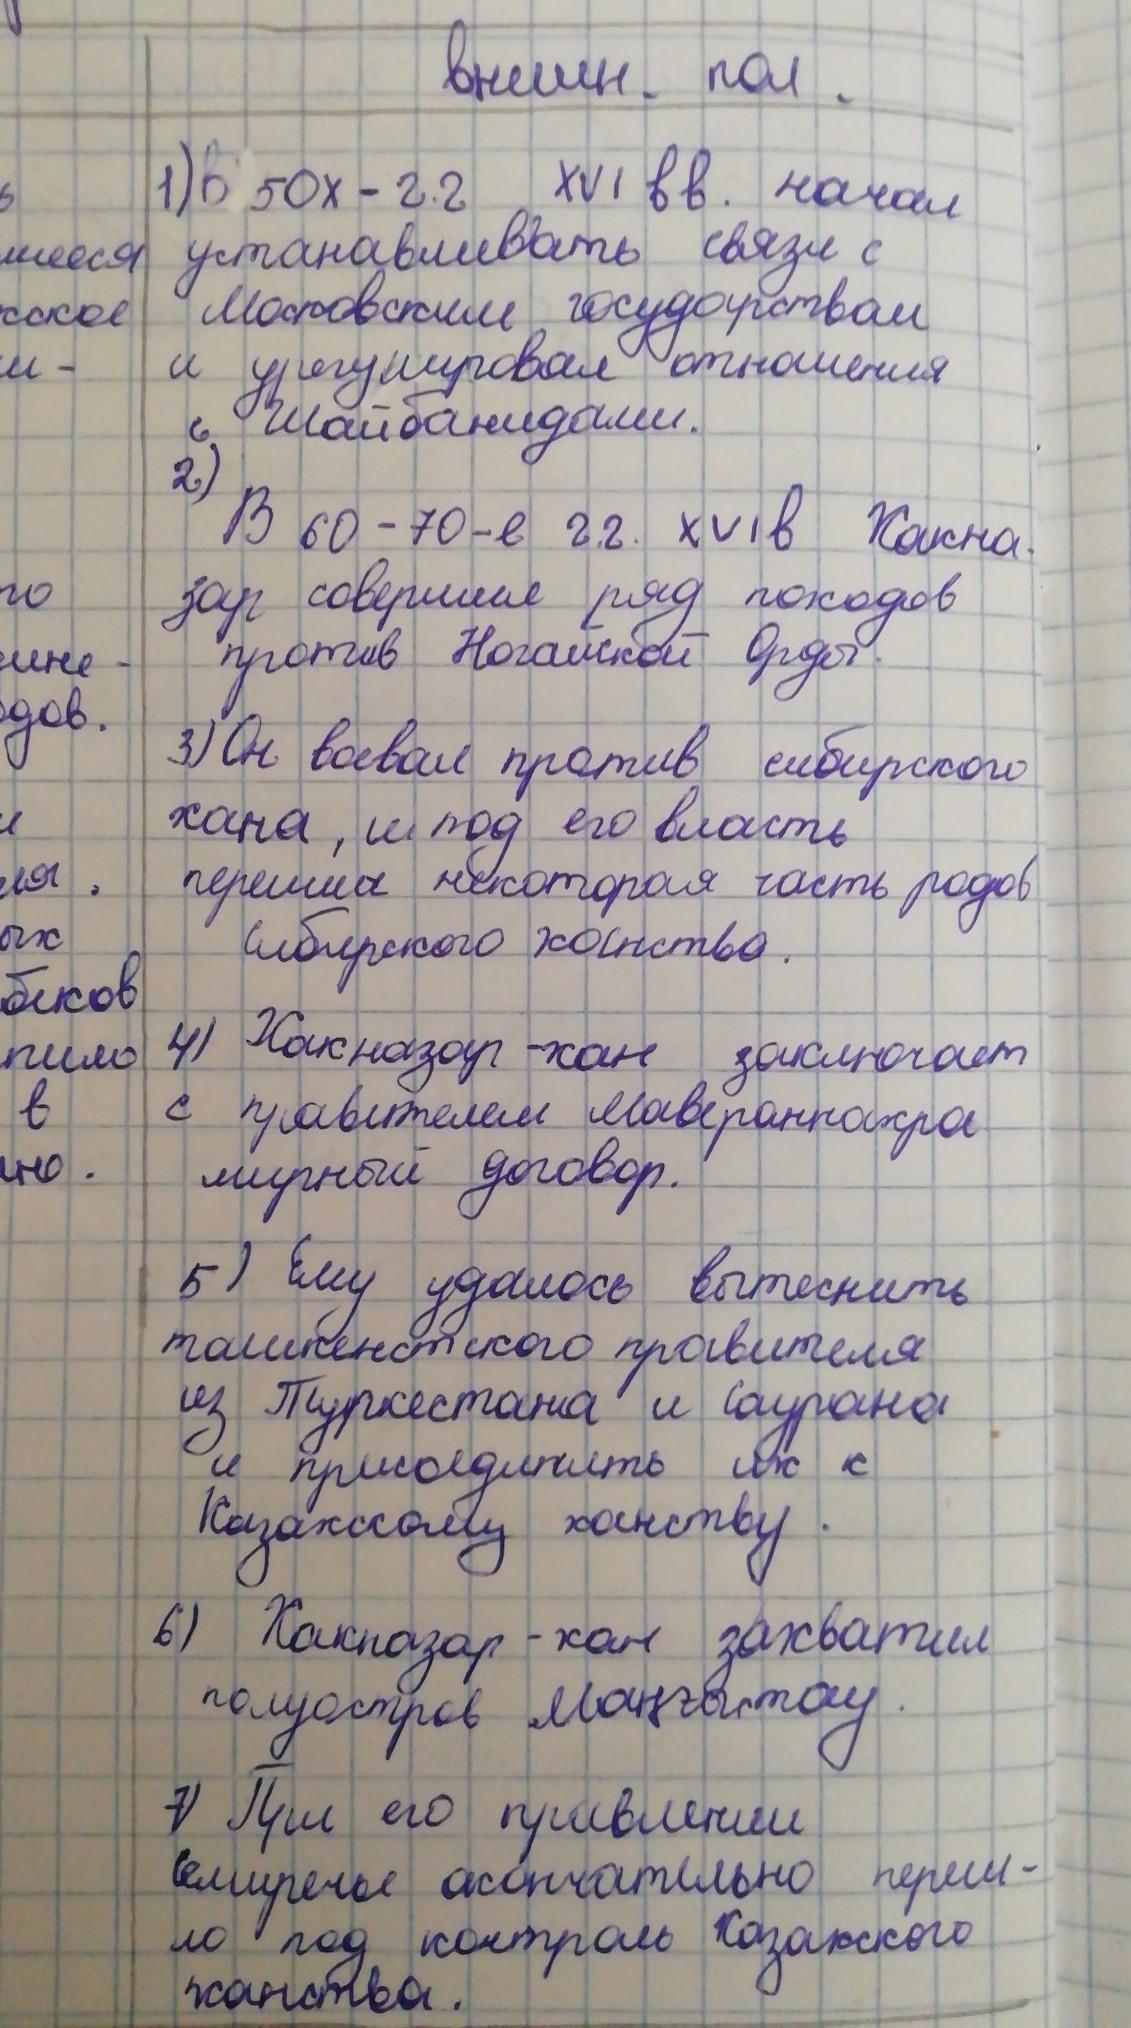 внешн. пол.
1) В 50х-г.г XVI вв. начал
устанавливать связи с
Московским государствам
и урегулировал отношения
с Шайбанидами.
2)
В 60-70-е г.г. XVI в Хакна-
зар совершил ряд походов
против Ногайской Орды.
3) Он воевал против сибирского
хана, и под его власть
перешла некоторая часть родов
Сибирского ханства.
4) Хакназар-хан заключает
с правителем Мавераннахра
мирный договор.
5) Ему удалось вытеснить
ташкенстского правителя
из Туркестана и Саурана
и присоединить их к
Казахскому ханству.
6) Хакназар-хан захватил
полуостров Маңғыстау.
7) При его правлении
Семиречье окончательно переш-
ло под контроль Казахского
ханства.
ь
шееся
жское
ши-
то
дов.
и
ля.
ых
беков
пило
в
но.